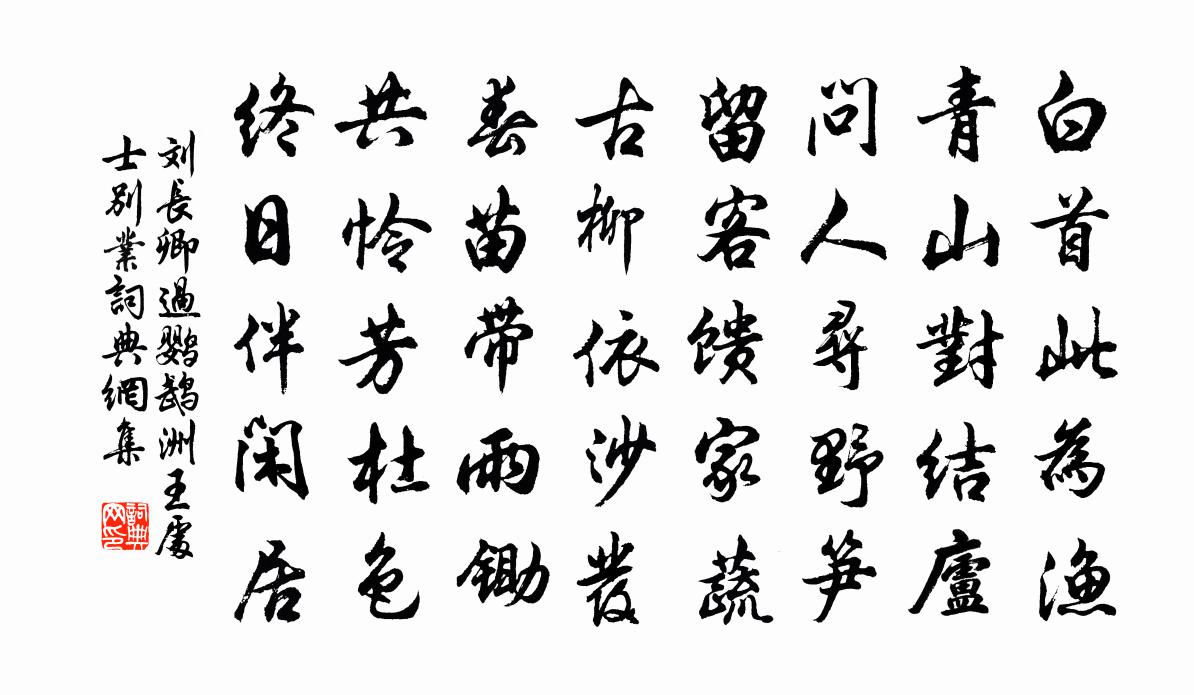 白首此為漁
青山對結廬
問人尋野笋
留客馈家蔬
古柳依沙發
春苗带雨鋤
共怜芳杜色
终日伴闲居
刘長卿過鹦鹉洲王處
士别業詞典網集
詞典
网印